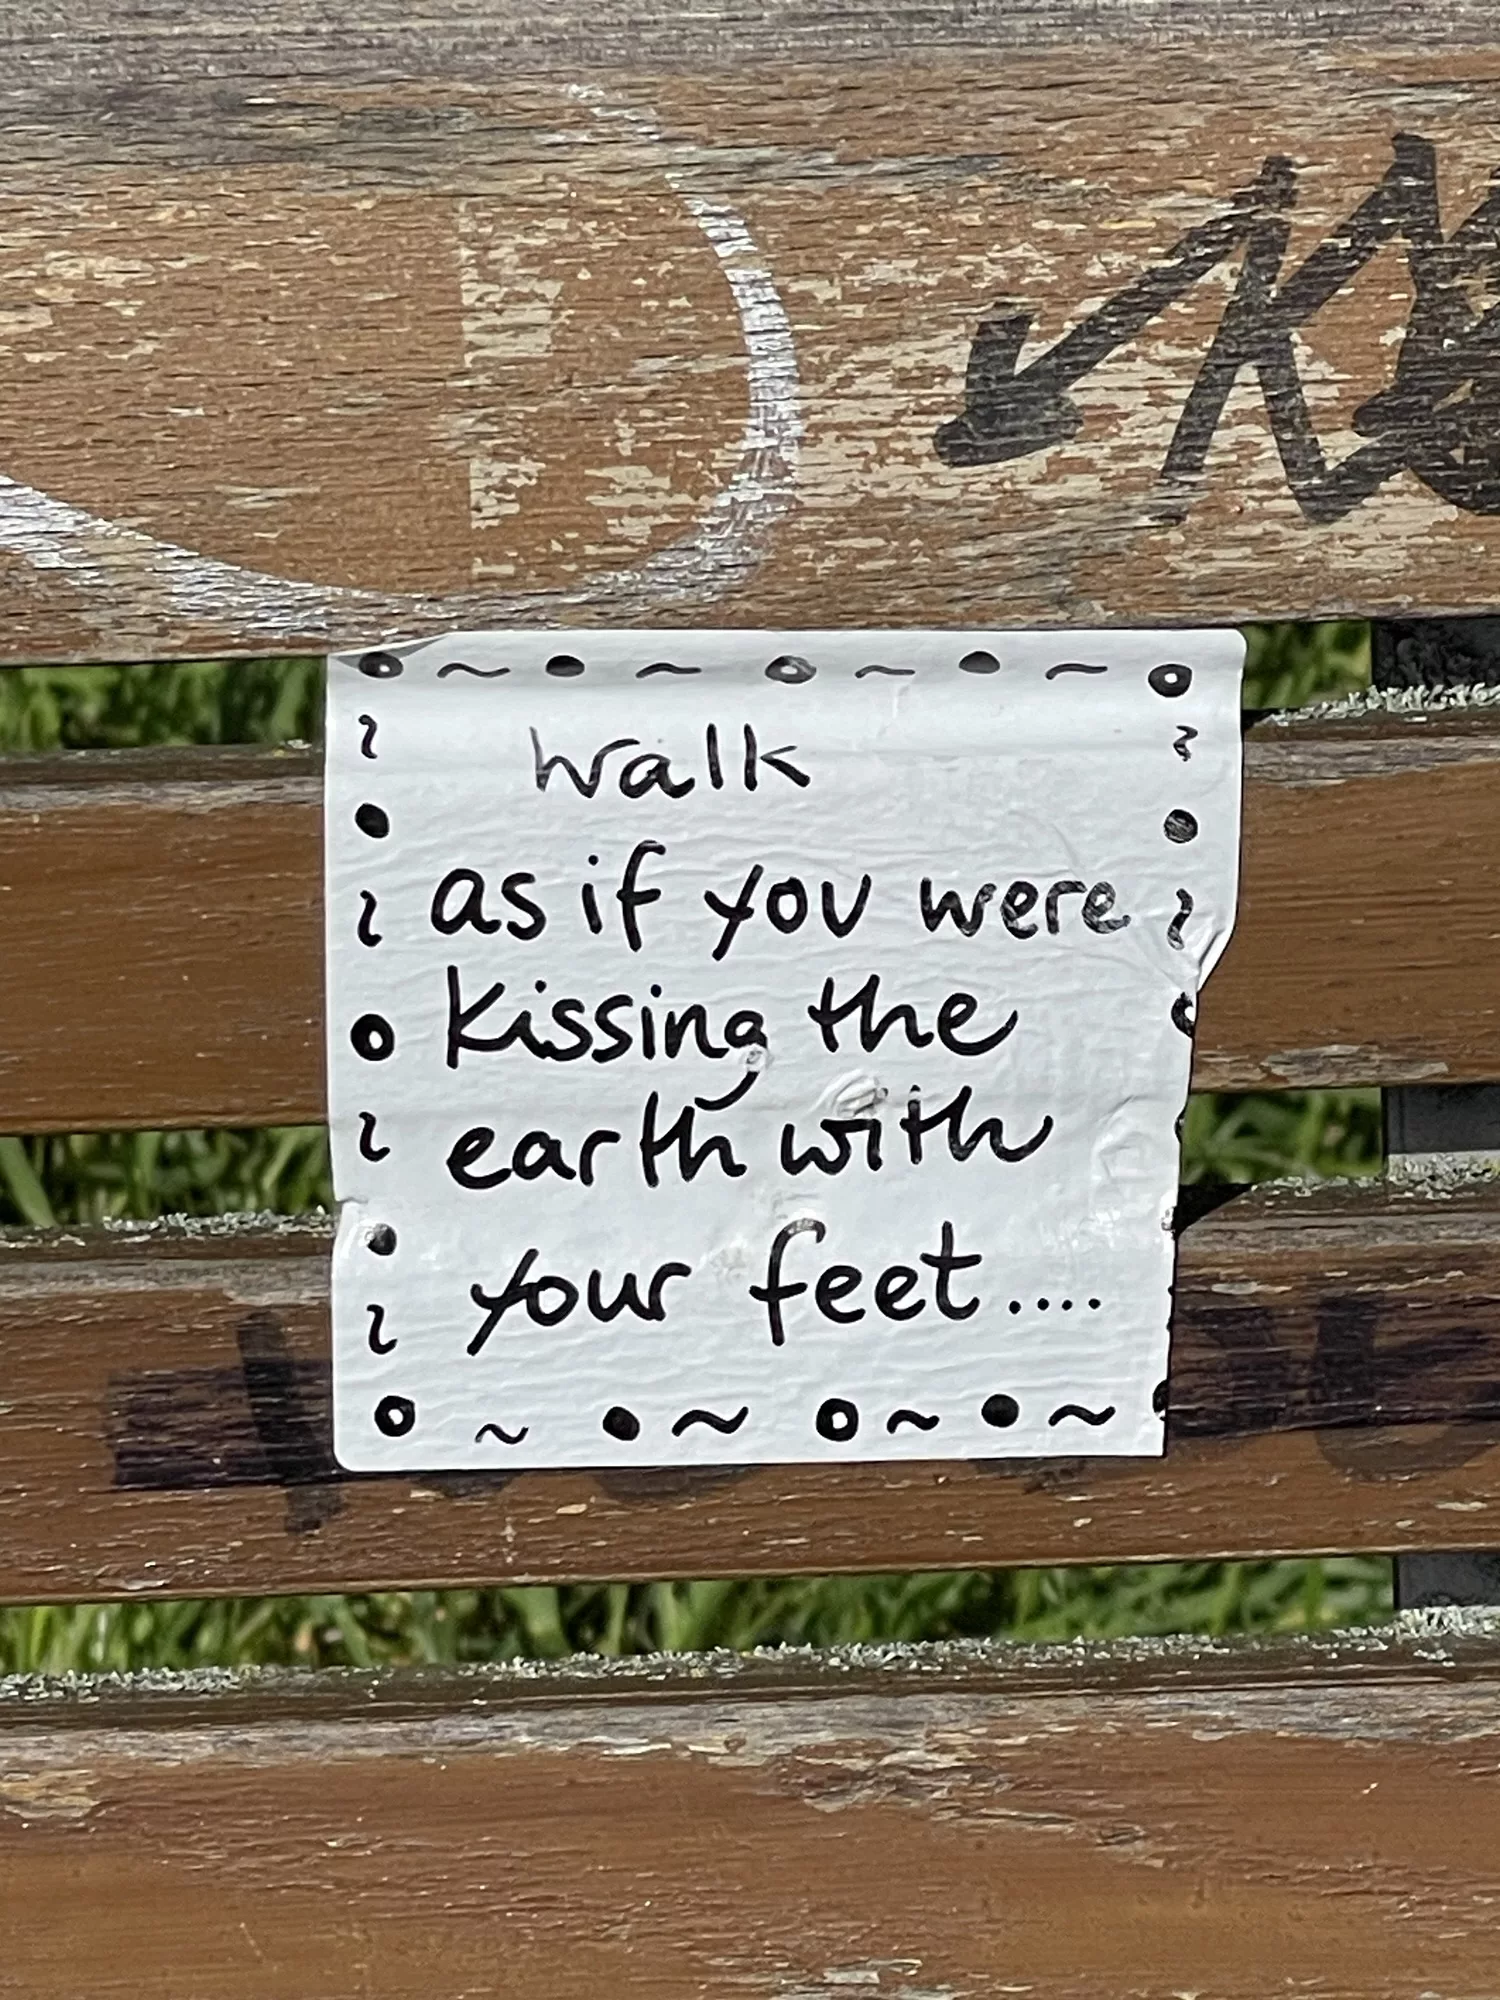 walk
as if you were
kissing the
earth with
your feet....